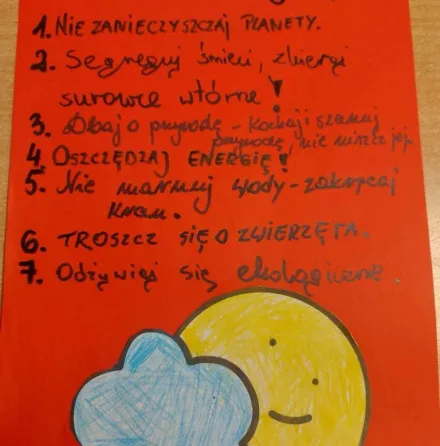 1. NIE ZANIECZYSZCZAJ PLANETY.
2. Segreguj śmieci, zbieraj
surowce wtórne!
3. Dbaj o przyrodę - kochaj i szanuj
przyrodę, nie niszcz jej.
4. OSZCZĘDZAJ ENERGIĘ!
5. Nie marnuj wody - zakręcaj
kran.
6. TROSZCZ SIĘ O ZWIERZĘTA.
7. Odżywiaj się ekologicznie.